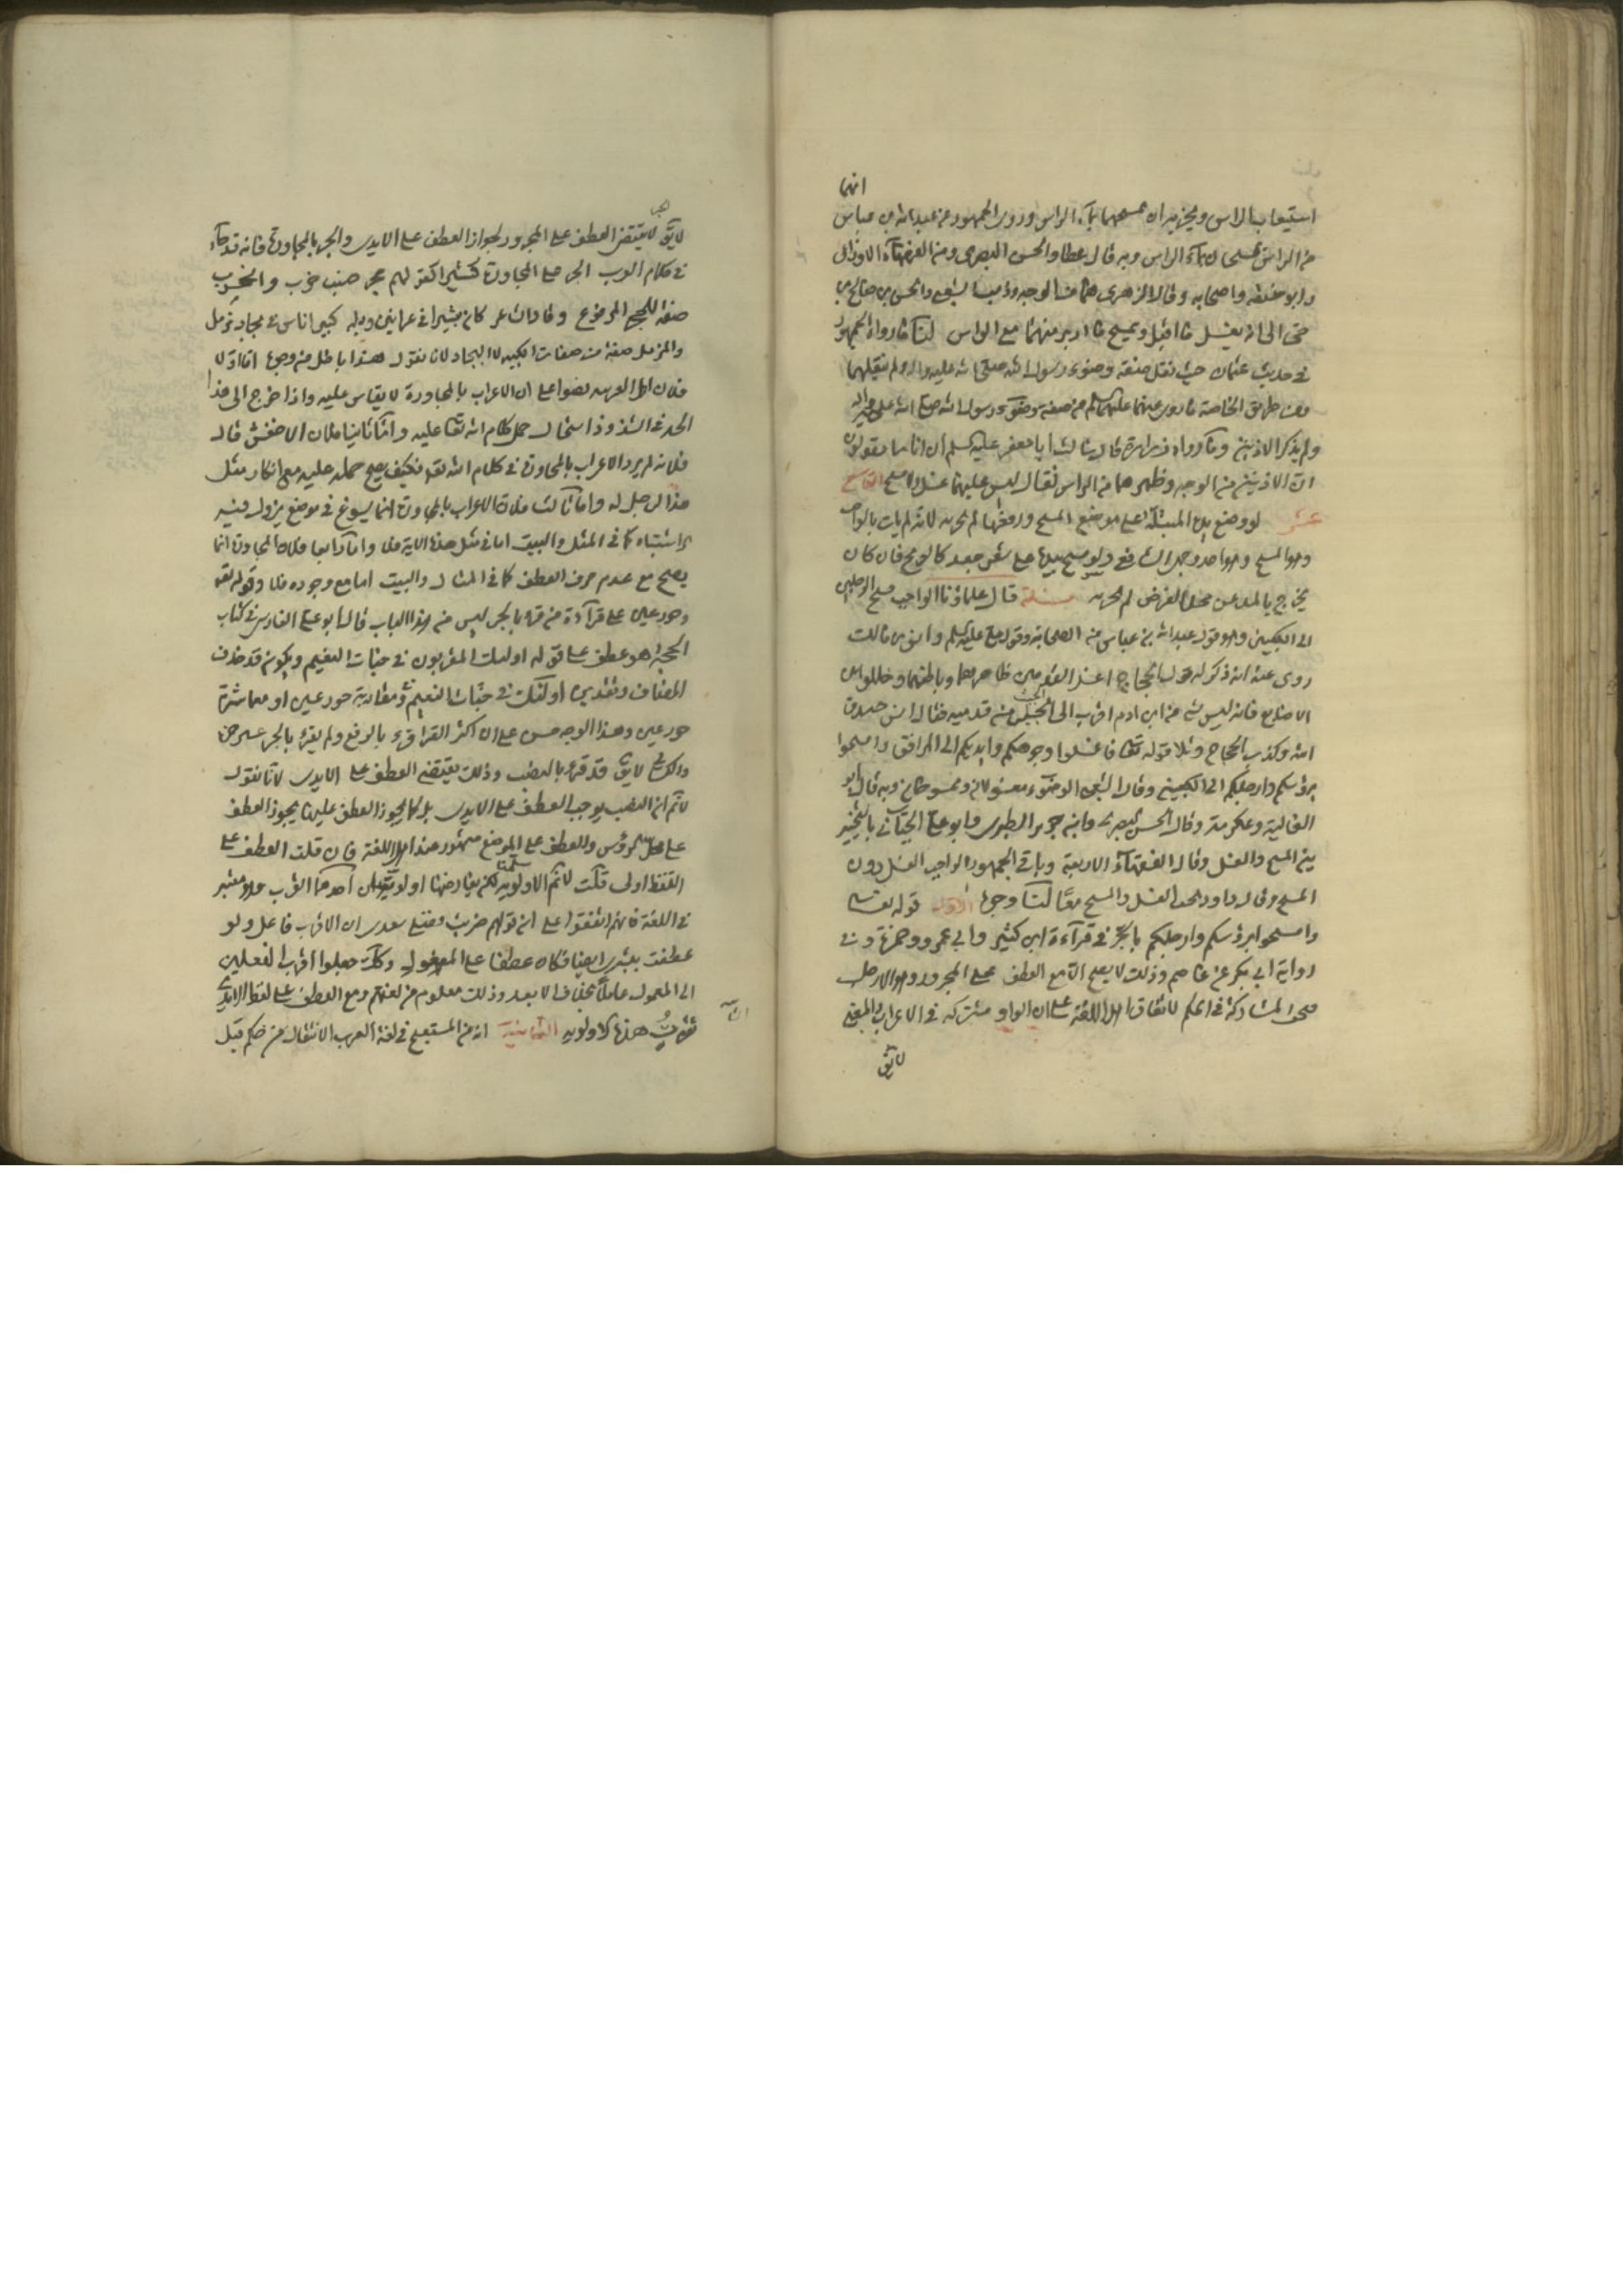 انهما
استيعاب الراس ويجزيه ان يمسحهما بمآء الراس وروى الجمهور عن عبد الله بن عباس
من الراس يمسحان بمآء الراس وبه قال عطا والحسن البصرى ومن الفقهآء الاوزاعى
وابو حنيفه واصحابه وقال الزهرى هما من الوجه وذهب الشعبى والحسن بن صالح بن
حى الى انه يغسل ما اقبل ويمسح ما ادبر منهما مع الراس لنا ما رواه الجمهور
فى حديث عثمان حيث نقل صفة وضوء رسول الله صلى الله عليه واله ولم ينقلهما
ومن طريق الخاصة ما روى عنهما عليهما السلم من صفة وضوء رسول الله صلى الله عليه واله
ولم يذكر الاذنين وما رواه زرارة قال سالت ابا جعفر عليه السلم ان اناسا يقولون
ان الاذنين من الوجه وظهرهما من الراس فقال ليس عليهما غسل ولا مسح التاسع
عشر لو وضع يده المبتلة على موضع المسح ورفعها لم يجزيه لانه لم يات بالواجب
وهو المسح وهو احد وجهى الشافعى ولو مسح بيده على شعر جعد كالوتح فان كان
يخرج بالمد عن محل الفرض لم يجزيه مسئلة قال علماؤنا الواجب مسح الرجلين
الى الكعبين وهو قول عبد الله بن عباس من الصحابة وقول على عليه السلم وانس بن مالك
روى عنه انه ذكر له قول الحجاج اغسلوا القدمين ظاهرهما وباطنهما وخللوا بين
الاصابع فانه ليس شى من ابن ادم اقرب الى الخبث من قدميه فقال انس صدق
الله وكذب الحجاج وتلا قوله تعالى فاغسلوا وجوهكم وايديكم الى المرافق وامسحوا
برؤسكم وارجلكم الى الكعبين وقال الشعبى الوضوء مغسولان وممسوحان وبه قال ابو
العالية وعكرمة وقال الحسن البصرى وابن جرير الطبرى وابو على الجبآئى بالتخيير
بين المسح والغسل وقال الفقهآء الاربعة وباقى الجمهور الواجب الغسل دون
المسح وقال داود يجب الغسل والمسح معًا لنا وجوه الاول قوله تعالى
وامسحوا برؤسكم وارجلكم بالجر فى قرآءة ابن كثير وابى عمرو وحمزة وفى
رواية ابى بكر عن عاصم وذلك لا يصح الا مع العطف على المجرور وهو الارجل
فيجب المشاركة فى الحكم لاتفاق اهل اللغة على ان الواو مشتركة فى الاعراب والمعنى
لا يق
لا يق لا يقتضى العطف على المجرور لجواز العطف على الايدى والجر بالمجاورة فانه قد جآء
فى كلام العرب الجر على المجاورة كثيرا كقولهم جحر ضب خرب والخرب
صفة للجحر المرفوع وقال الشاعر كان ثبيرا فى عرانين وبله كبير اناس فى بجاد مزمل
والمزمل صفة من صفات الكبير لا البجاد لانا نقول هذا باطل من وجوه اما اولا
فلان اهل العربيه نصوا على ان الاعراب بالمجاورة لا يقاس عليه واذا خرج الى هذا
الحد من الشذوذ استحال حمل كلام الله تعا عليه وامّا ثانيا فلان الاخفش قال
فلانه لم يرد الاعراب بالمجاورة فى كلام الله تعا فكيف يصح حمله عليه مع انكار مثل
هذا الرجل له وامّا ثالثا فلان الاعراب بالمجاورة انما يسوغ فى موضع يزول فيه
الاشتباه كما فى المثل والبيت اما فى مثل هذه الاية فلا وامّا رابعا فلان المجاورة انما
يصح مع عدم حرف العطف كما فى المثال والبيت اما مع وجوده فلا وقوله تعا
وحور عين على قرآءة من قرء بالجر ليس من هذا الباب قال ابو على الفارسى فى كتاب
الحجة هو عطف على قوله اولئك المقربون فى جنات النعيم ويكون قد حذف
المضاف وتقديره اولئك فى جنّات النعيم وفى مقاربة حور عين او معاشرة
حور عين وهذا الوجه حسن على ان اكثر القرّاء قرء بالرفع ولم يقرء بالجر غير حمزة
والكسائى لا يق قد قرئ بالنصب وذلك يقتضى العطف على الايدى لانا نقول
لا نم ان النصب يوجب العطف على الايدى بل كما يجوز العطف عليها يجوز العطف
على محل الرؤس والعطف على الموضع مشهور عند اهل اللغة فان قلت العطف على
اللفظ اولى قلت لا نم الاولوية سلمنا لكن يعارضها اولويتان احدهما القرب وهو معتبر
فى اللغة فانهم اتفقوا على ان قولهم ضربت وضربنى سعدى ان الاقرب فاعل ولو
عطفت بشرى ايضا فكان عطفا على المفعول وكذا جعلوا اقرب الفعلين
الى المعمول عاملًا بخلاف الابعد وذلك معلوم من لغتهم ومع العطف على لفظ الايدى
تفوت هذه الاولوية الثانية انه من المستقبح فى لغة العرب الانتقال من حكم قبل